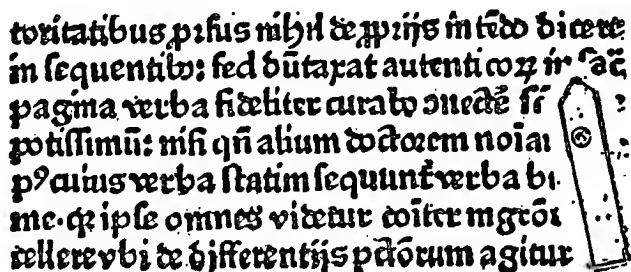 toritatibus prorsus nihil de ꝓprijs intēdo dicere
in sequentibꝰ: sed dūtaxat autenticoꝝ in sac̄
pagina verba fideliter curabo ↄnectē
potissimū: nisi qn̄ alium doctorem noīaꝛ
pꝰ cuius verba statim sequunt̄ verba
me. qꝛ ipse omnes videtur
tellere vbi de differentijs pctōrum agitur